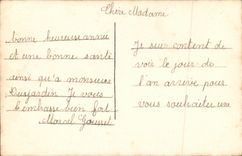 Chère Madame
Je suis content de
voir le jour de
l'an arrivé pour
vous souhaiter une
bonne heureuse année
et une bonne santé
ainsi qu'a monsieur
Dujardin Je vous
l'embrasse bien fort
Marcel